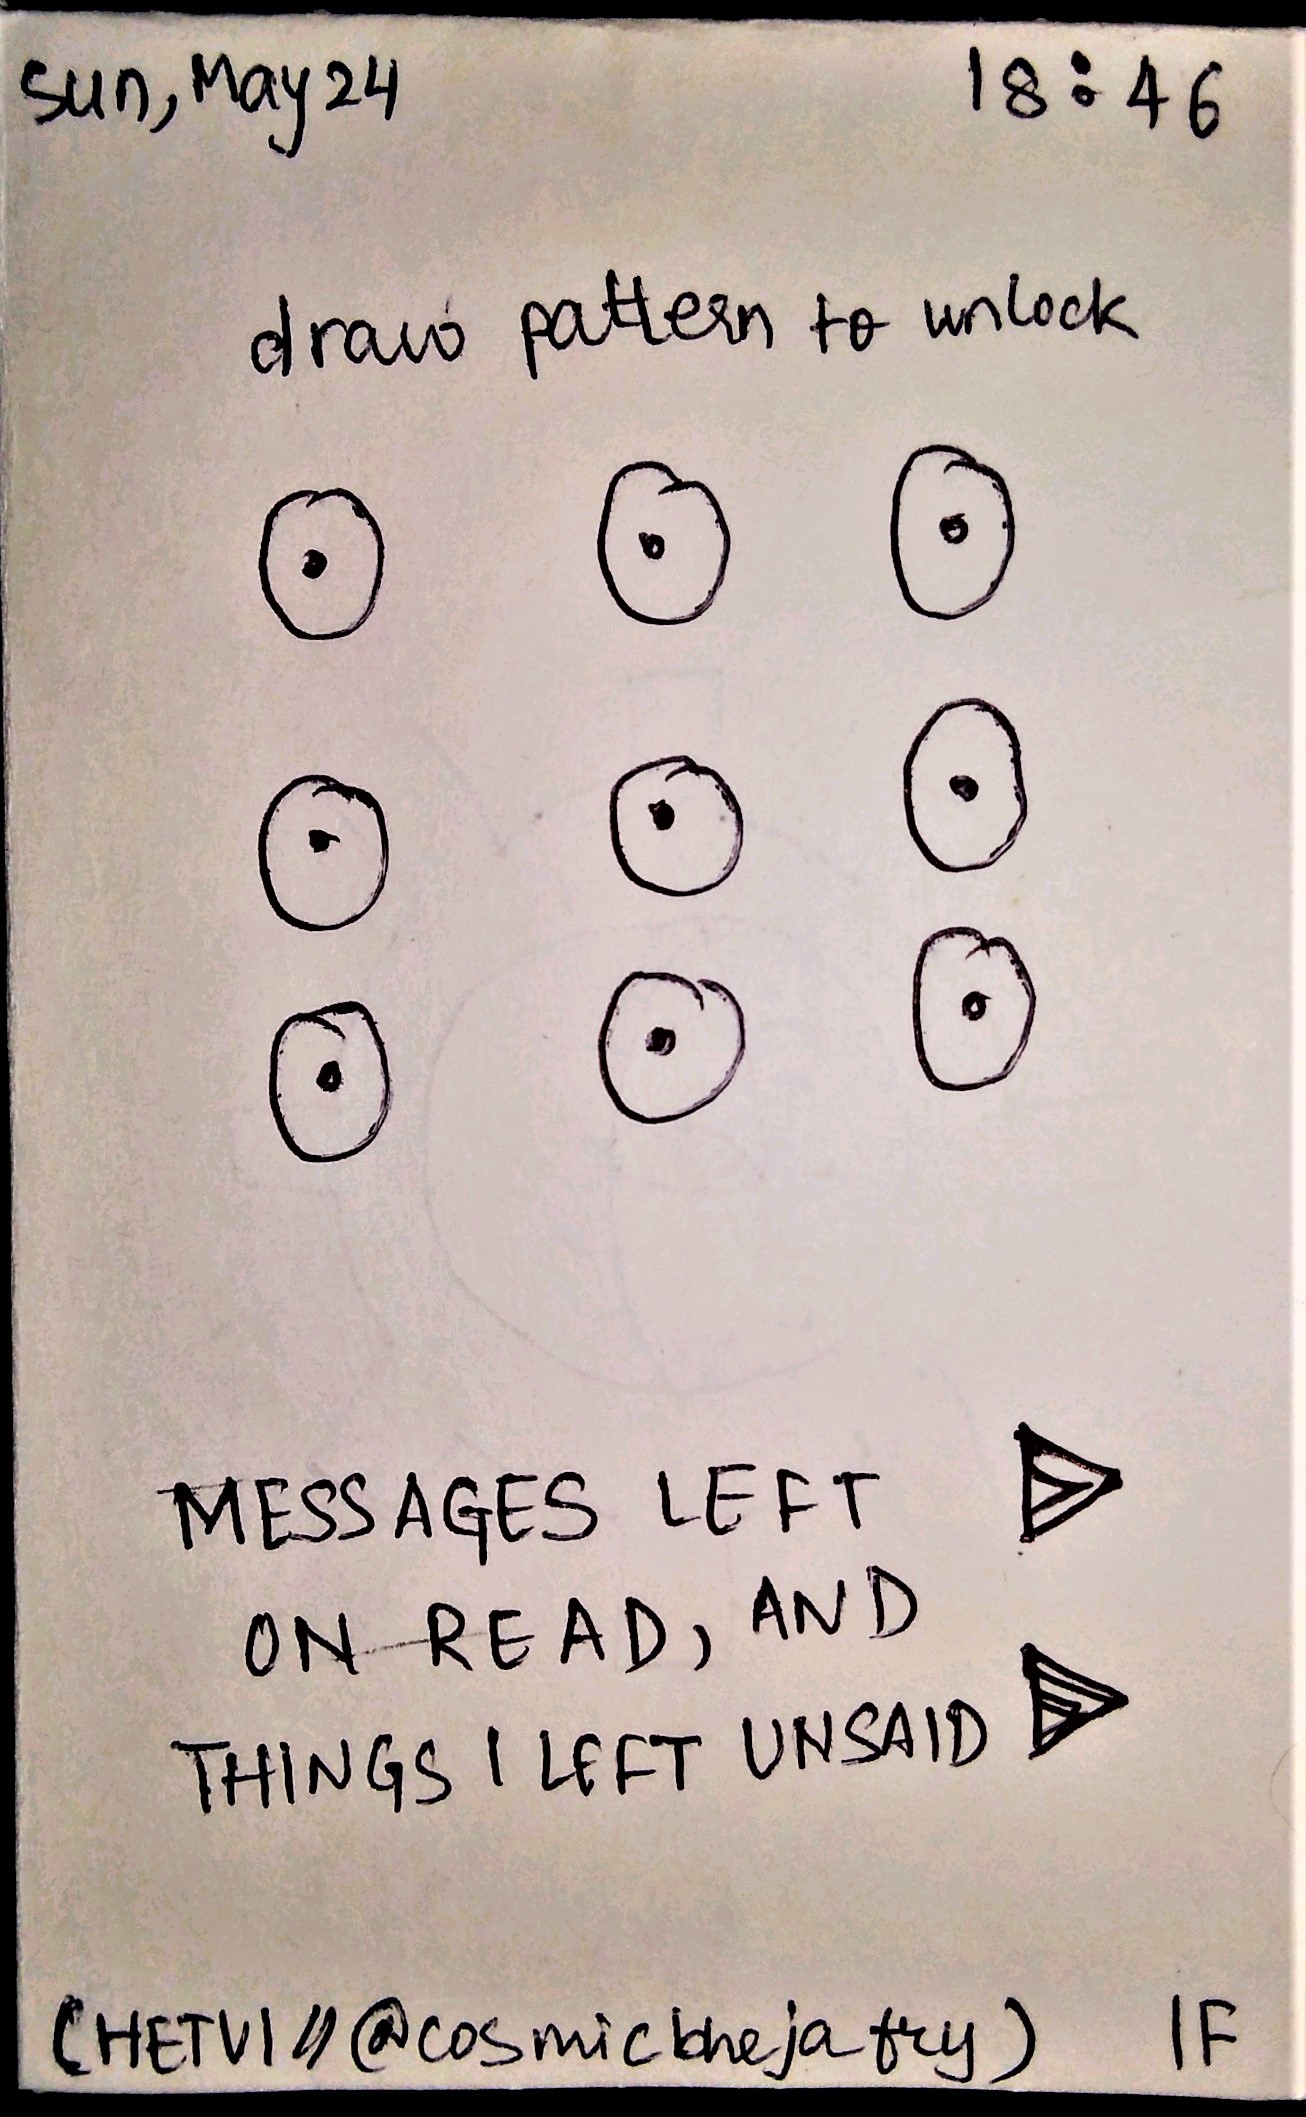 Sun, May 24 18:46
draw pattern to unlock
MESSAGES LEFT
ON READ, AND
THINGS I LEFT UNSAID
(HETVI // @cosmicbhejafry) IF